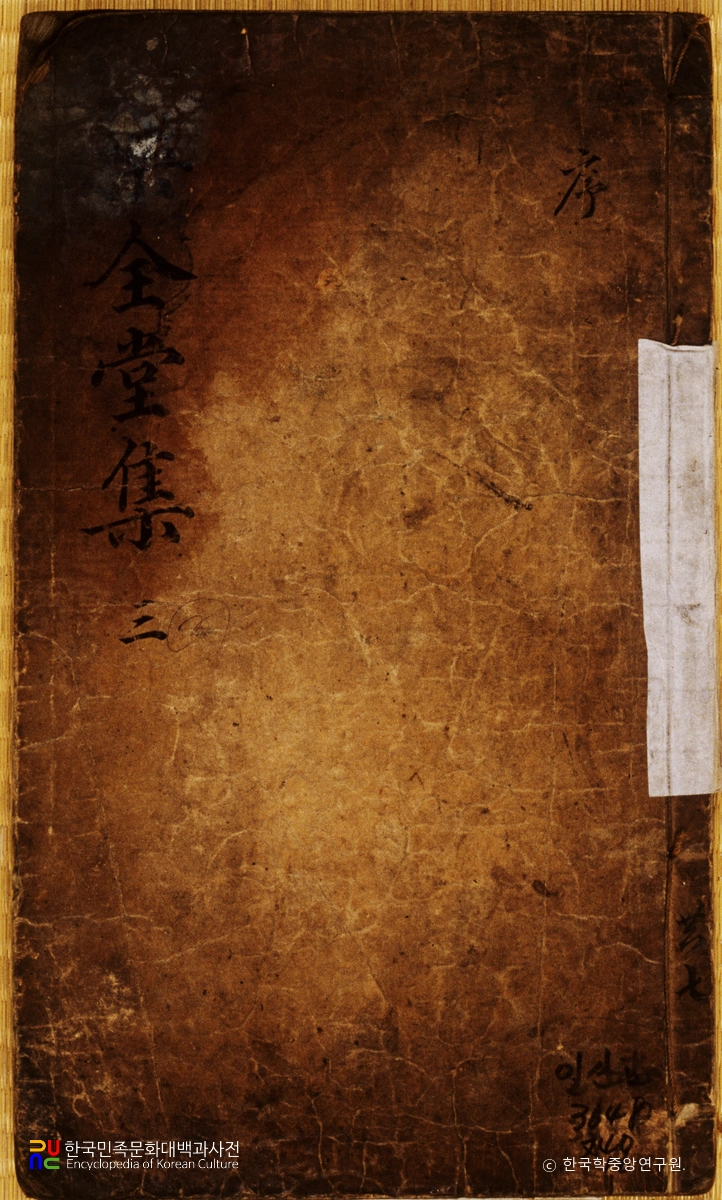 序
全堂集
三
共七
한국민족문화대백과사전
Encyclopedia of Korean Culture
ⓒ 한국학중앙연구원.